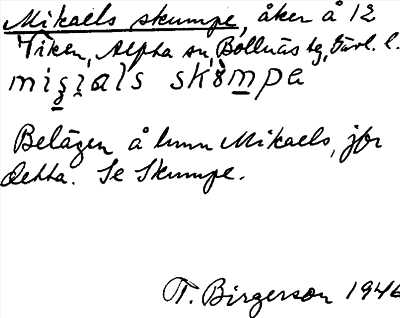 Mikaels skumpe, åker å 12
Viken, Alpha sn, Bollnäs tg, Gävl. l.
Belägen å hmn Mikaels, jfr
detta. Se Skumpe.
T. Birgerson 1946